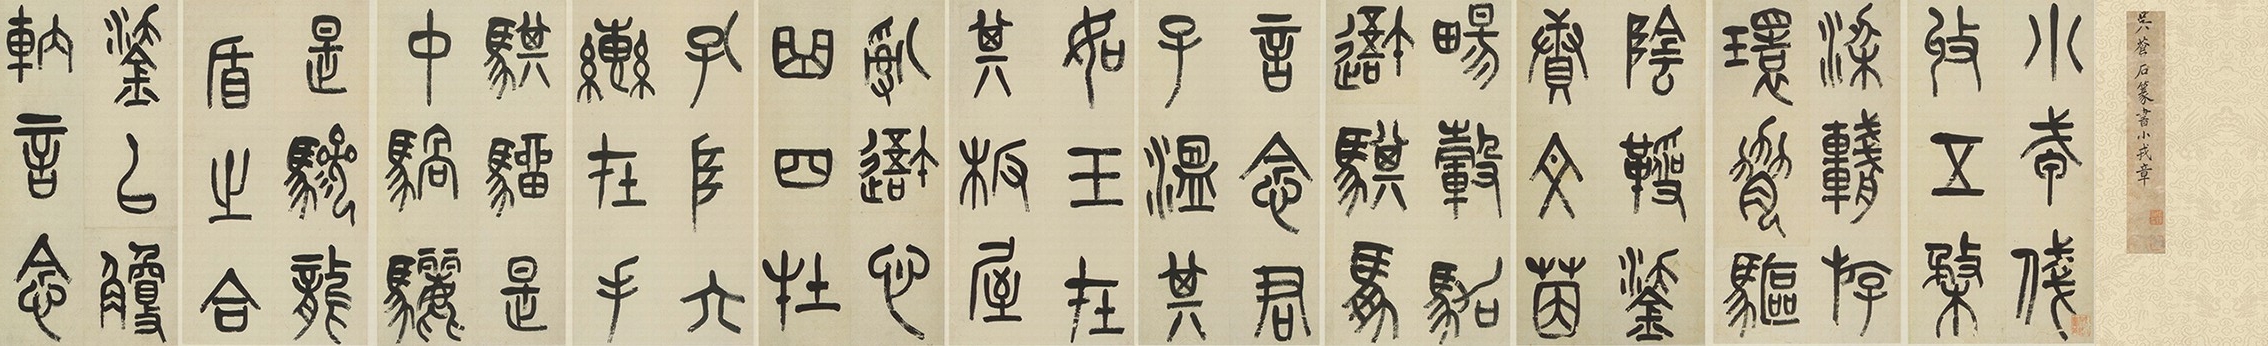 吳蒼石篆書小戎章
小戎俴
收五楘
梁輈斿
環脅驅
陰靷鋈
續文茵
暢轂駕
我騏馵
言念君
子溫其
如玉在
其板屋
亂我心
曲四牡
孔阜六
轡在手
騏騮是
中騧驪
是驂龍
盾之合
鋈以觼
軜言念